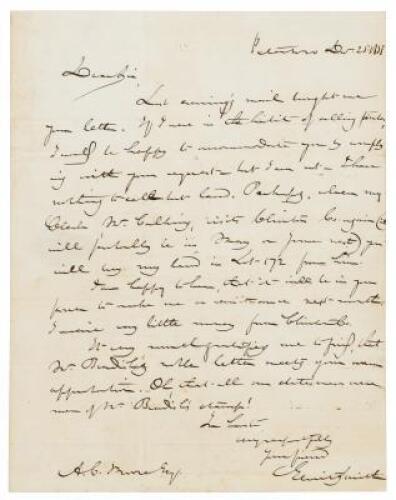 Peterboro Dec. 25 1838
Dear Sir,
Last evening's mail brought me
your letter. If I were in the habit of selling
I would be happy to accommodate you by comply
ing with your request - but I am not - I have
nothing to sell but land. Perhaps, when my
Clerk Mr. visits Clinton Co. again (it
will probably be in May or June next) you
will buy my land in Lot 172 from him.
I am happy to learn, that it will be in your
power to make me a remittance next month.
I receive very little money from Clinton Co.
It very much gratifies me to find, that
Mr. noble letter meets your warm
approbation. Oh that all our statesmen were
men of Mr. stamp!
In haste
very respectfully
Your friend
Gerrit Smith
A.C. Moore Esq.